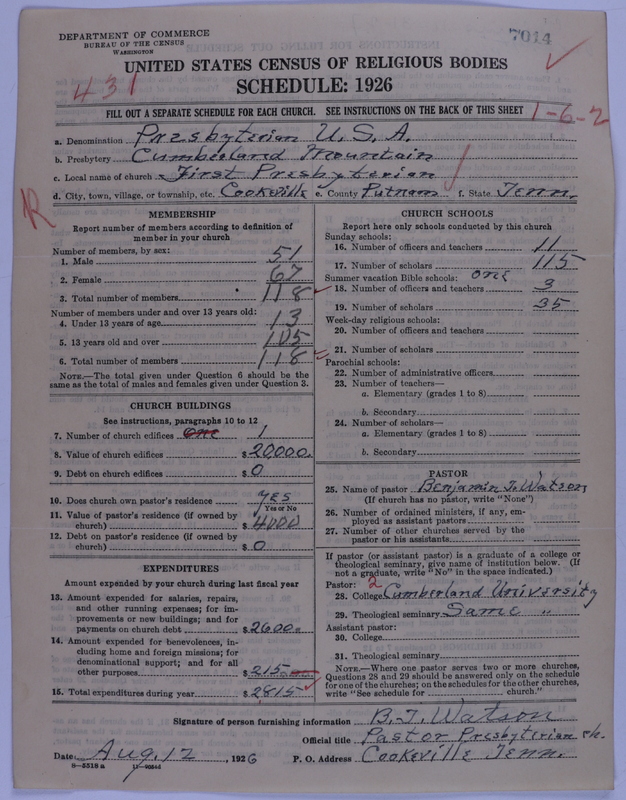 DEPARTMENT OF COMMERCE
BUREAU OF THE CENSUS
WASHINGTON
7014
UNITED STATES CENSUS OF RELIGIOUS BODIES
SCHEDULE: 1926
431
FILL OUT A SEPARATE SCHEDULE FOR EACH CHURCH. SEE INSTRUCTIONS ON THE BACK OF THIS SHEET
1-6-2
a. Denomination Presbyterian U.S.A.
b. Presbytery Cumberland Mountain
c. Local name of church First Presbyterian
d. City, town, village, or township, etc. Cookeville e. County Putnam f. State Tenn.
R
MEMBERSHIP
Report number of members according to definition of
member in your church
Number of members, by sex:
1. Male 51
2. Female 67
3. Total number of members 118
Number of members under and over 13 years old:
4. Under 13 years of age 13
5. 13 years old and over 105
6. Total number of members 118
NOTE.—The total given under Question 6 should be the
same as the total of males and females given under Question 3.
CHURCH BUILDINGS
See instructions, paragraphs 10 to 12
7. Number of church edifices one 1
8. Value of church edifices $20000.
9. Debt on church edifices $0
10. Does church own pastor's residence yes
Yes or No
11. Value of pastor's residence (if owned by
church) $4000
12. Debt on pastor's residence (if owned by
church) $0
EXPENDITURES
Amount expended by your church during last fiscal year
13. Amount expended for salaries, repairs,
and other running expenses; for im-
provements or new buildings; and for
payments on church debt $2600.
14. Amount expended for benevolences, in-
cluding home and foreign missions; for
denominational support; and for all
other purposes $215
15. Total expenditures during year $2815
CHURCH SCHOOLS
Report here only schools conducted by this church
Sunday schools:
16. Number of officers and teachers 11
17. Number of scholars 115
Summer vacation Bible schools: one
18. Number of officers and teachers 3
19. Number of scholars 35
Week-day religious schools:
20. Number of officers and teachers
21. Number of scholars
Parochial schools:
22. Number of administrative officers
23. Number of teachers—
a. Elementary (grades 1 to 8)
b. Secondary
24. Number of scholars—
a. Elementary (grades 1 to 8)
b. Secondary
PASTOR
25. Name of pastor Benjamin T. Watson
(If church has no pastor, write "None")
26. Number of ordained ministers, if any, em-
ployed as assistant pastors
27. Number of other churches served by the
pastor or his assistants
If pastor (or assistant pastor) is a graduate of a college or
theological seminary, give name of institution below. (If
not a graduate, write "No" in the space indicated.)
Pastor: 2
28. College Cumberland University
29. Theological seminary Same "
Assistant pastor:
30. College
31. Theological seminary
NOTE.—Where one pastor serves two or more churches,
Questions 28 and 29 should be answered only on the schedule
for one of the churches; on the schedules for the other churches,
write "See schedule for church."
Signature of person furnishing information B. T. Watson
Official title Pastor Presbyterian ch.
Date Aug. 12, 1926 P. O. Address Cookeville Tenn.
8-5318 a